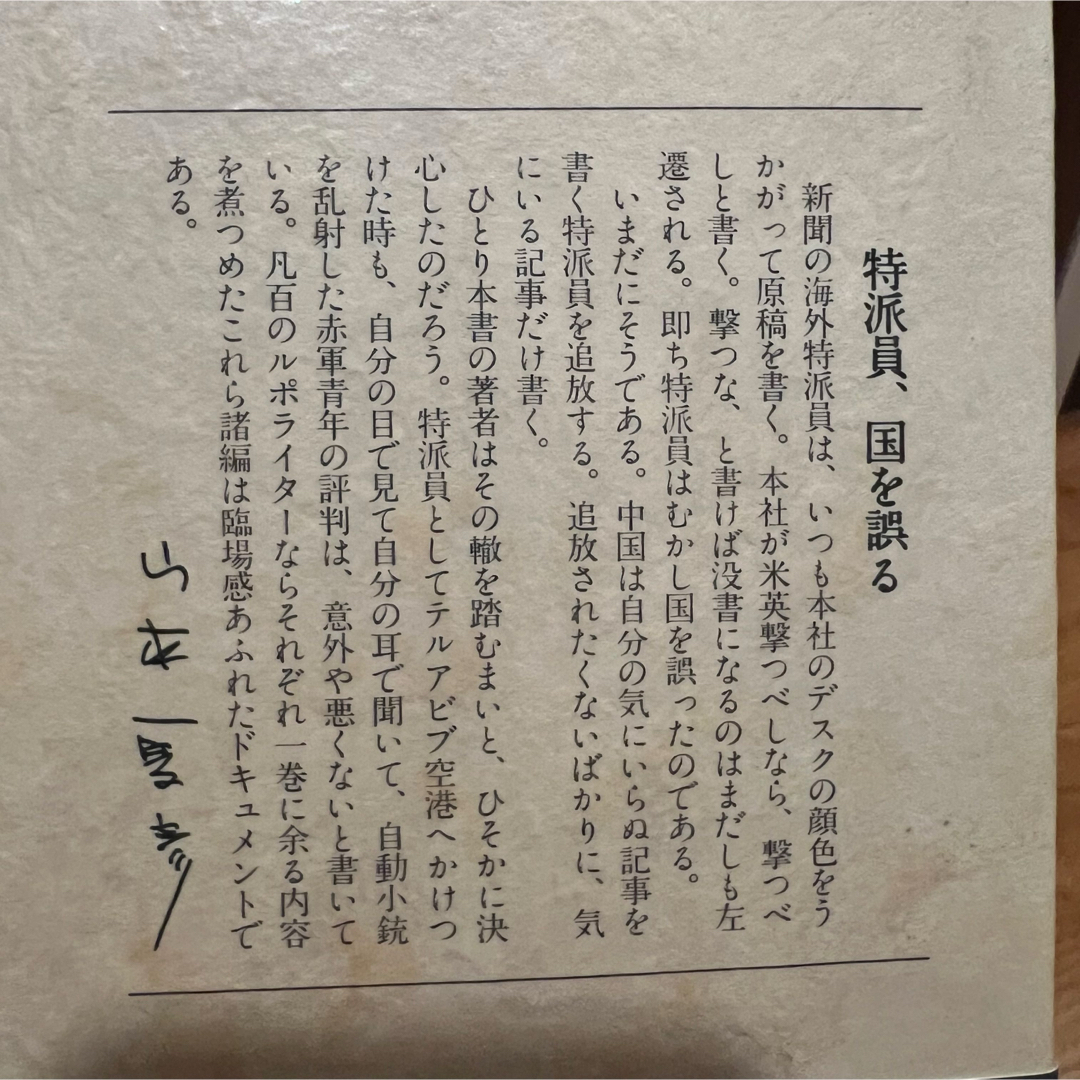 特派員、国を誤る
　新聞の海外特派員は、いつも本社のデスクの顔色をう
かがって原稿を書く。本社が米英撃つべしなら、撃つべ
しと書く。撃つな、と書けば没書になるのはまだしも左
遷される。即ち特派員はむかし国を誤ったのである。
　いまだにそうである。中国は自分の気にいらぬ記事を
書く特派員を追放する。追放されたくないばかりに、気
にいる記事だけ書く。
　ひとり本書の著者はその轍を踏むまいと、ひそかに決
心したのだろう。特派員としてテルアビブ空港へかけつ
けた時も、自分の目で見て自分の耳で聞いて、自動小銃
を乱射した赤軍青年の評判は、意外や悪くないと書いて
いる。凡百のルポライターならそれぞれ一巻に余る内容
を煮つめたこれら諸編は臨場感あふれたドキュメントで
ある。
山本夏彦